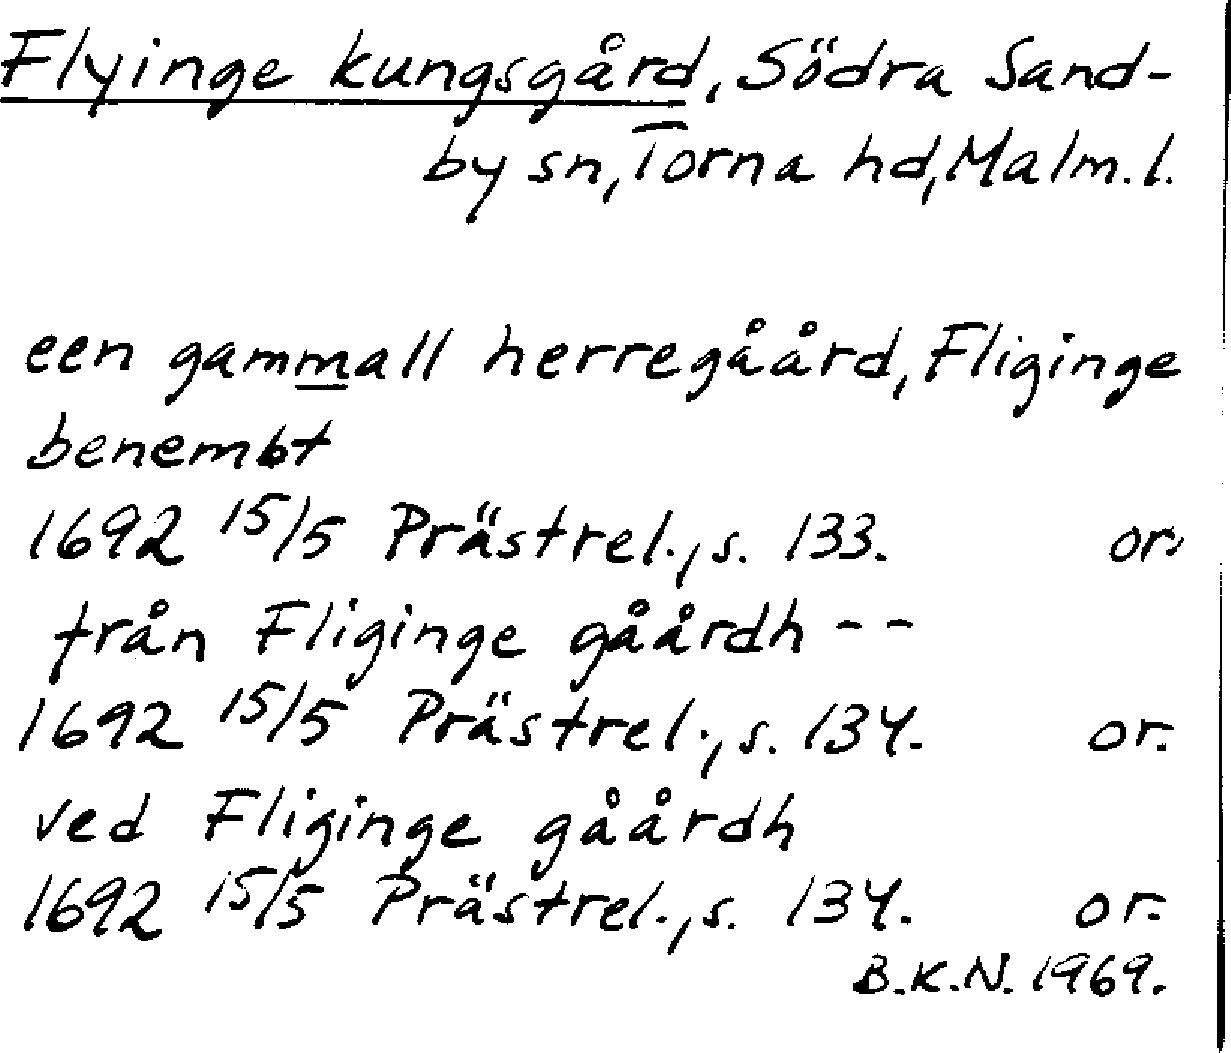 Flyinge kungsgård, Södra Sand-
by sn, Torna hd, Malm. l.
een gammall herregåård, Fliginge
benembt
1692 15/5 Prästrel., s. 133. or.
från Fliginge gåårdh - -
1692 15/5 Prästrel., s. 134. or.
ved Fliginge gåårdh
1692 15/5 Prästrel., s. 134. or.
B.K.N. 1969.